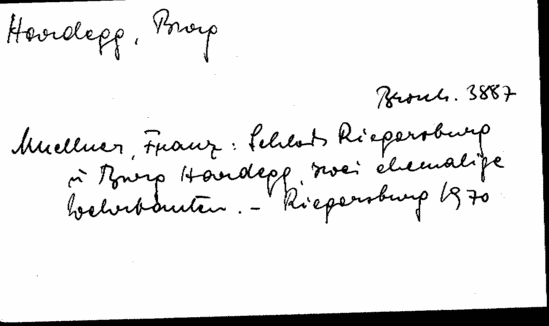 Hardegg, Burg
Brosch. 3887
Muellner, Franz: Schloß Riegersburg
u Burg Hardegg, zwei ehemalige
Wehrbauten. – Riegersburg 1970